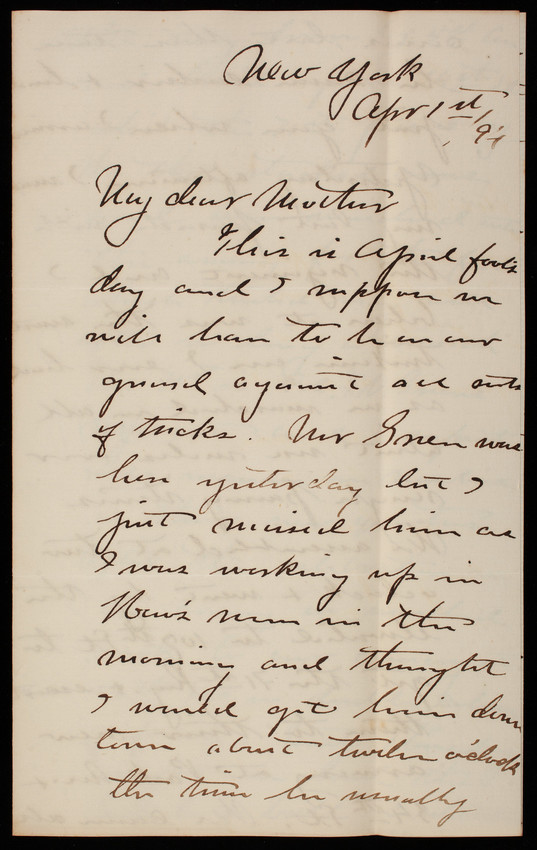 New York
Apr 1st/
My dear Mother
This is April fools
day and I suppose we
will have to be on our
guard against all sorts
of tricks. Mr Green was
here yesterday but I
just missed him as
I was working up in
room in the
morning and thought
I would get him down
town about twelve o'clock
the time he usually